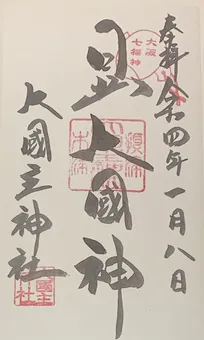 奉拝 令和四年一月八日
大阪
七福神
日出大國神
大國主神社